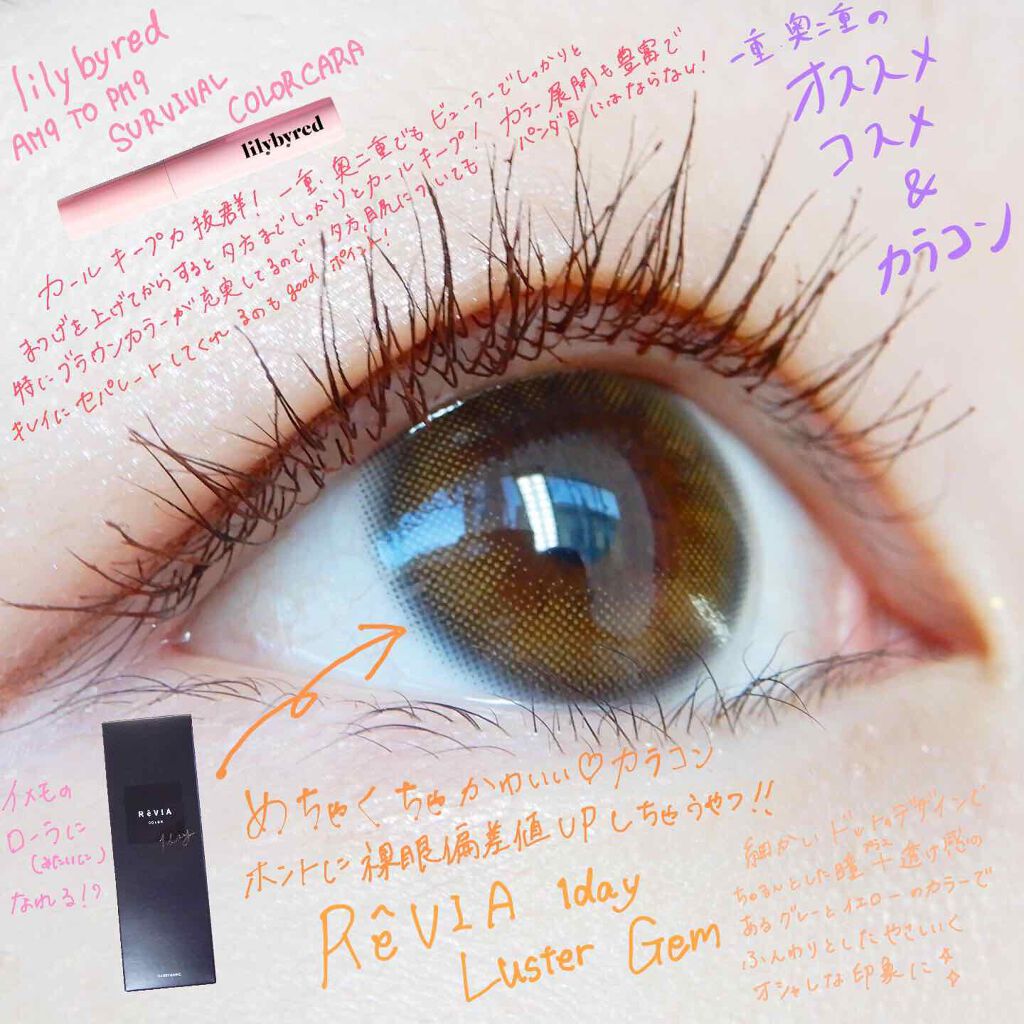 lilybyred
AM9 TO PM9
SURVIVAL
COLORCARA
lilybyred
一重、奥二重の
オススメ
コスメ
&
カラコン
カールキープ力 抜群！一重、奥二重でもビューラーでしっかりと
まつげを上げてからすると夕方までしっかりとカールキープ！カラー展開も豊富で
特にブラウンカラーが充実してるので、夕方、目尻についてもパンダ目にはならない！
キレイにセパレートしてくれるのもgoodポイント！
イメモの
ローラに
(みたいに)
なれる!?
RêVIA
1day
めちゃくちゃかわいい♡カラコン
ホントに裸眼偏差値UPしちゃうやつ!!
RêVIA 1day
Luster Gem
細かいドットのデザインで
ちゅるんとした瞳+透け感の
あるグレーとイエローのカラーで
ふんわりとしたやさしいく
オシャレな印象に